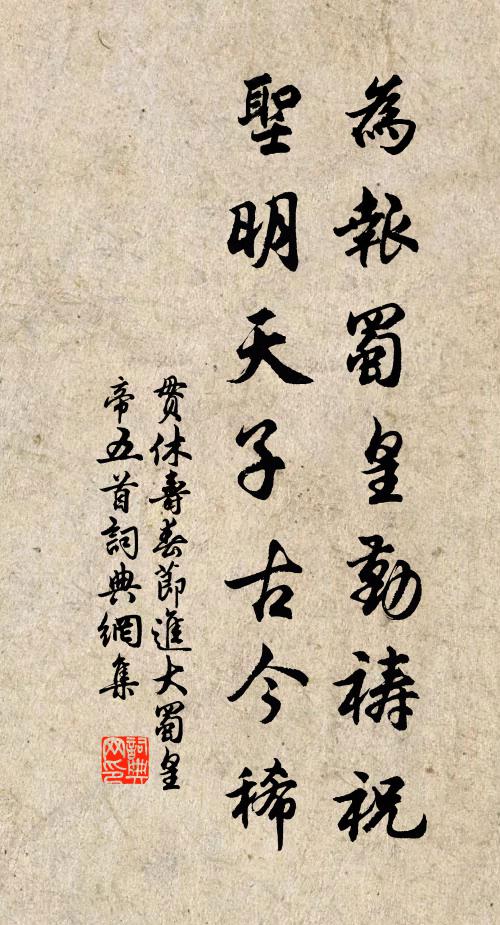 為報蜀皇勤禱祝
聖明天子古今稀
貫休壽春節進大蜀皇
帝五首詞典網集
詞典
网印